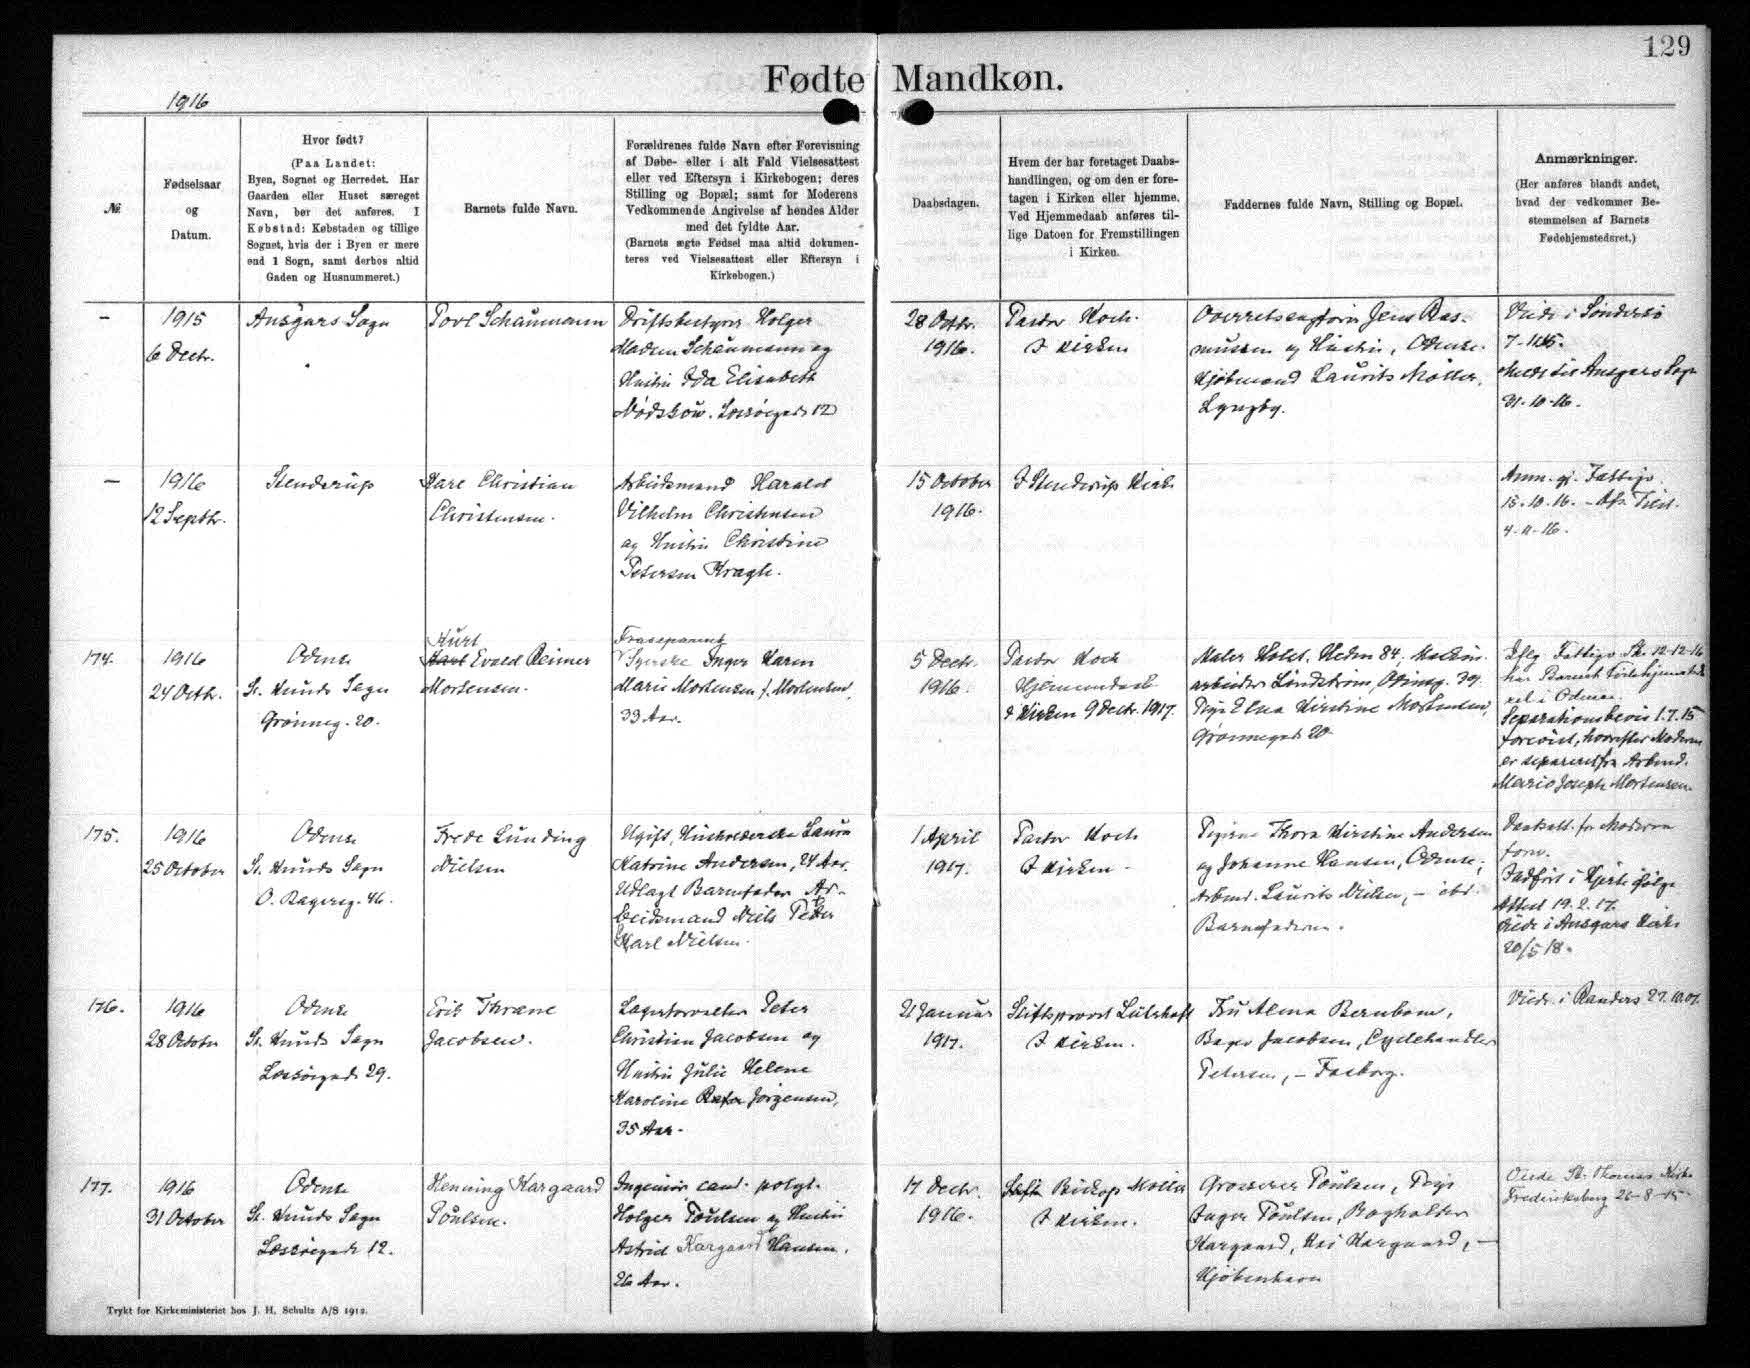 129
Fødte Mandkøn.
1916
№
Fødselsaar
og
Datum.
Hvor født?
(Paa Landet:
Byen, Sognet og Herredet. Har
Gaarden eller Huset særeget
Navn, bør det anføres. I
Købstad: Købstaden og tillige
Sognet, hvis der i Byen er mere
end 1 Sogn, samt derhos altid
Gaden og Husnummeret.)
Barnets fulde Navn.
Forældrenes fulde Navn efter Forevisning
af Døbe- eller i alt Fald Vielsesattest
eller ved Eftersyn i Kirkebogen; deres
Stilling og Bopæl; samt for Moderens
Vedkommende Angivelse af hendes Alder
med det fyldte Aar.
(Barnets ægte Fødsel maa altid dokumen-
teres ved Vielsesattest eller Eftersyn i
Kirkebogen.)
Daabsdagen.
Hvem der har foretaget Daabs-
handlingen, og om den er fore-
tagen i Kirken eller hjemme.
Ved Hjemmedaab anføres til-
lige Datoen for Fremstillingen
i Kirken.
Faddernes fulde Navn, Stilling og Bopæl.
Anmærkninger.
(Her anføres blandt andet,
hvad der vedkommer Be-
stemmelsen af Barnets
Fødehjemstedsret.)
–
1915
6 Dectr.
Ansgars Sogn
Povl Schaumann
Driftsbestyrer Holger
Madsen Schaumann og
Hustru Ida Elisabeth
Nødskou. Læssøegade 12
28 Octbr.
1916.
Pastor Koch.
I Kirken
Overretssagfører Jens Ras-
mussen og Hustru, Odense.
Kjøbmand Laurits Møller,
Lyngby.
Viede i Søndersø
Meldt til Ansgars Sogn
31-10-16.
–
1916
12 Septbr.
Stenderup
Karl Christian
Christensen.
Arbeidsmand Harald
Vilhelm Christensen
og Hustru Christine
Petersen Kragh.
15 October
1916.
I Stenderup Kirke
15-10-16.
4-11-16.
174.
1916
24 Octbr.
Odense
St. Knuds Sogn
Grønneg. 20.
Kurt
Karl Evald Reimer
Mortensen.
Frasepareret
Syerske Inger Karen
Marie Mortensen f. Mortensen,
33 Aar.
5 Dectr.
1916.
Pastor Koch
Hjemmedaab
I Kirken 9 Dectr. 1917.
Maler Holst, Heden 84, Maskin-
arbeider Lindstrøm, 39.
Pige Elna Kirstine Mortensen,
Grønnegade 20.
Iflg. Fattigv. Sk. 12-12-16
har Barnet Fødehjemsteds-
ret i Odense.
Separationsbevis 1.7.15
forevist, hvorefter Moderen
er separeret fra Arbmd.
Mario Joseph Mortensen.
175.
1916
25 October
Odense
St. Knuds Sogn
O. Bagerg. 46.
Frede Lunding
Nielsen
Ugift, Husholderske Laura
Katrine Andersen, 24 Aar.
Udlagt Barnefader Ar-
beidsmand Niels Peter
Karl Nielsen.
1 April
1917.
Pastor Koch
I Kirken –
Pigerne Thora Kirstine Andersen
og Johanne Hansen, Odense,
Arbmd. Laurits Nielsen, –
Barnefaderen.
Daabsatt. for Moderen
forev.
Indført i ifølge
Attest 19.2.17.
Viede i Ansgars Kirke
20/5 18.
176.
1916
28 October
Odense
St. Knuds Sogn
Læssøegade 29.
Erik Thrane
Jacobsen.
Lagerforvalter Peter
Christian Jacobsen og
Hustru Julie Helene
Karoline Jørgensen,
35 Aar.
21 Januar
1917.
Stiftsprovst Lützhøft
I Kirken.
Fru Alma Bernbom,
Bager Jacobsen, Cyclehandler
Petersen, – Faaborg.
Viede i Randers 27.10.07.
177.
1916
31 October
Odense
St. Knuds Sogn
Læssøegade 12.
Henning Kargaard
Poulsen.
Ingeniør cand. polyt.
Holger Poulsen og Hustru
Astrid Kargaard Hansen,
26 Aar.
17 Dectr.
1916.
Biskop Møller
I Kirken.
Grosserer Poulsen, Pige
Inger Poulsen, Bogholder
Kargaard, Kai Kargaard, –
Kjøbenhavn
Viede St. Thomas Kirke
Frederiksberg 26-8-15.
Trykt for Kirkeministeriet hos J. H. Schultz A/S 1912.